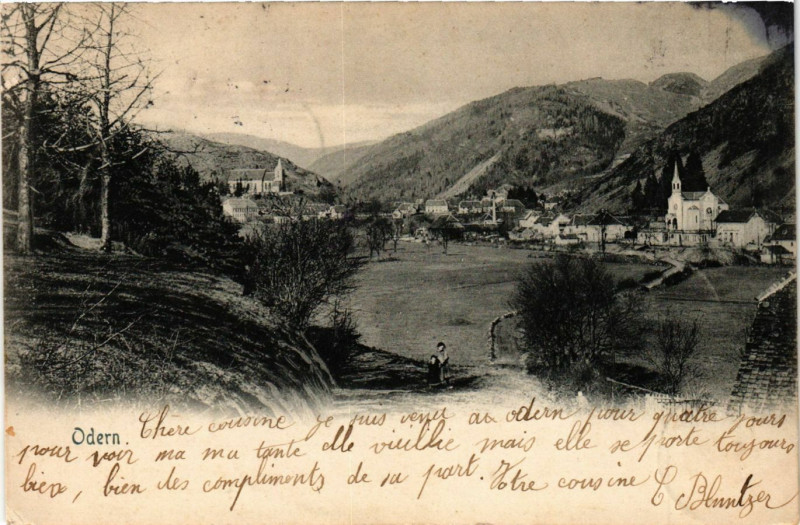 Odern.
Chère cousine je suis venu a odern pour quatre jours
pour voir ma ma tante elle vieillie mais elle se porte toujours
bien, bien des compliments de sa part. Votre cousine C Bluntzer